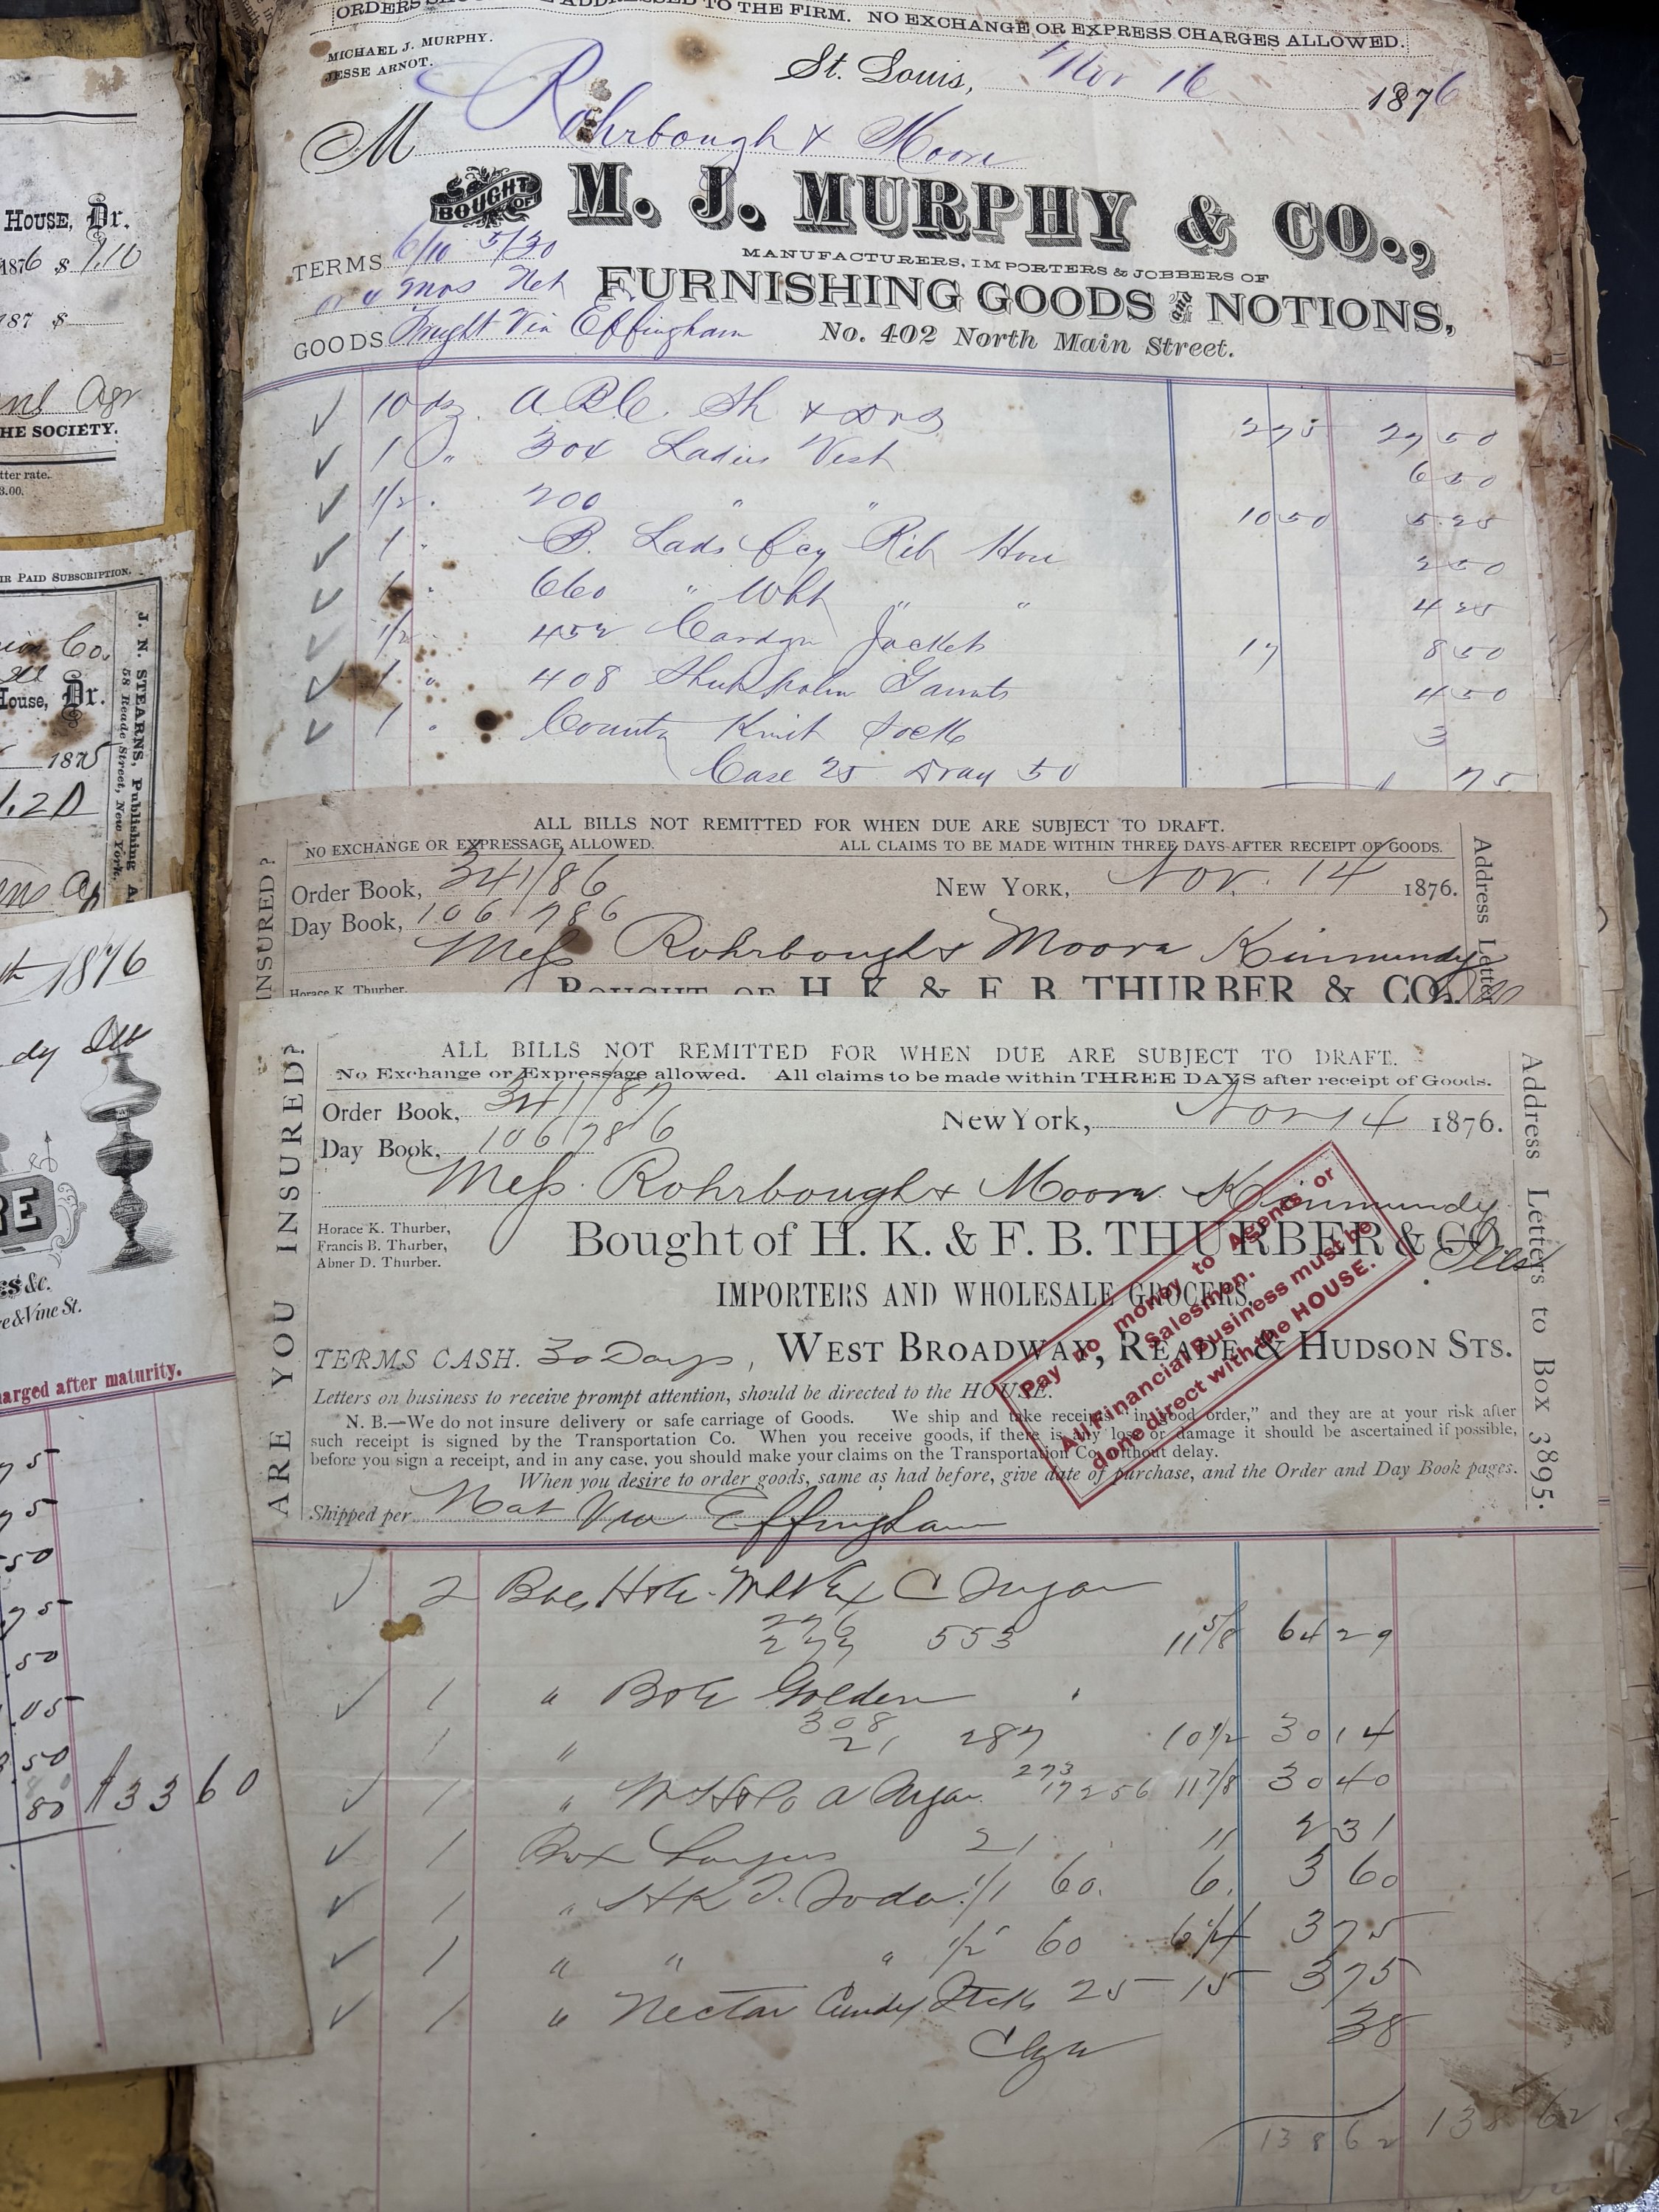 ORDERS SHOULD BE ADDRESSED TO THE FIRM. NO EXCHANGE OR EXPRESS CHARGES ALLOWED.
MICHAEL J. MURPHY.
JESSE ARNOT.
St. Louis, Nov 16 1876
M Rohrbough & Moore
BOUGHT OF M. J. MURPHY & CO.,
MANUFACTURERS, IMPORTERS & JOBBERS OF
FURNISHING GOODS and NOTIONS,
No. 402 North Main Street.
TERMS 6/10 5/30
or 4 mos Net
GOODS Via Effingham
10 dz. A B C. Sh & Drs 275 27 50
1 " 304 Ladies Vest 6 50
1/2 " 200 " " 10 50 5.25
1 " B. Lads fcy Rib Hose 2 50
1 " 660 " Wht " " 4 25
1/2 " 452 Cardgn Jackets 17 8 50
1 " 408 Gaunts 4 50
1 " County Knit Socks 3
Case 25 Dray 50 75
ALL BILLS NOT REMITTED FOR WHEN DUE ARE SUBJECT TO DRAFT.
NO EXCHANGE OR EXPRESSAGE ALLOWED. ALL CLAIMS TO BE MADE WITHIN THREE DAYS AFTER RECEIPT OF GOODS.
Order Book, 341/86
NEW YORK, Nov. 14 1876.
Day Book, 106/786
Mess Rohrbough & Moore Kinmundy
Horace K. Thurber,
BOUGHT OF H. K. & F. B. THURBER & CO.,
INSURED?
Address Letters
ALL BILLS NOT REMITTED FOR WHEN DUE ARE SUBJECT TO DRAFT.
No Exchange or Expressage allowed. All claims to be made within THREE DAYS after receipt of Goods.
Order Book, 341/87
New York, Nov 14 1876.
Day Book, 106/786
Mess. Rohrbough & Moore. Kinmundy
Ills
Horace K. Thurber,
Francis B. Thurber,
Abner D. Thurber.
Bought of H. K. & F. B. THURBER & CO.
IMPORTERS AND WHOLESALE GROCERS,
TERMS CASH. 30 Days, WEST BROADWAY, READE & HUDSON STS.
Letters on business to receive prompt attention, should be directed to the HOUSE.
N. B.—We do not insure delivery or safe carriage of Goods. We ship and take receipts "in good order," and they are at your risk after
such receipt is signed by the Transportation Co. When you receive goods, if there is any loss or damage it should be ascertained if possible,
before you sign a receipt, and in any case, you should make your claims on the Transportation Co. without delay.
When you desire to order goods, same as had before, give date of purchase, and the Order and Day Book pages.
Shipped per Nat Via Effingham
Pay no money to Agents or
Salesmen.
All Financial Business must be
done direct with the HOUSE.
ARE YOU INSURED?
Address Letters to Box 3895.
2 Bbls H&E. Ex C Sugar
276
277 553 11 5/8 64 29
1 " Golden "
1 " 308
21 287 10 1/2 30 14
1 " A Sugar 273
17 256 11 7/8 30 40
1 Box 21 11 2 31
1 " HK T. Soda 1/1 60. 6. 3 60
1 " " " 1/2 60 6 1/4 3 75
1 " Nectar Candy Sticks 25 15 3 75
Ctge 38
138 62 138 62
HOUSE, Dr.
1876 $ 1.10
187 $
Agr
THE SOCIETY.
3.00.
PAID SUBSCRIPTION.
Co.
House, Dr.
1875
1.20
J. N. STEARNS, Publishing A
58 Reade Street, New York.
1876
dy Ill
RE
ES &c.
re & Vine St.
charged after maturity.
75
75
50
75
.50
.05
3.50
80 $33 60